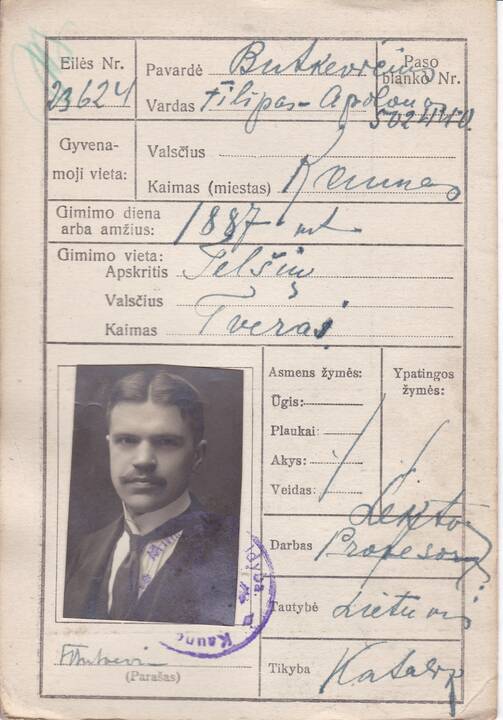 Eilės Nr. 23624
Pavardė Butkevičius
Vardas Filipas-Apolonas
Paso blanko Nr. 502440
Gyvena-
moji vieta:
Valsčius
Kaimas (miestas) Kaunas
Gimimo diena
arba amžius: 1887 mt
Gimimo vieta:
Apskritis Telšių
Valsčius
Kaimas Tverai
Asmens žymės:
Ūgis:
Plaukai:
Akys:
Veidas:
Ypatingos
žymės:
Darbas Profesorius
Tautybė Lietuvis
Tikyba Katalik
(Parašas)